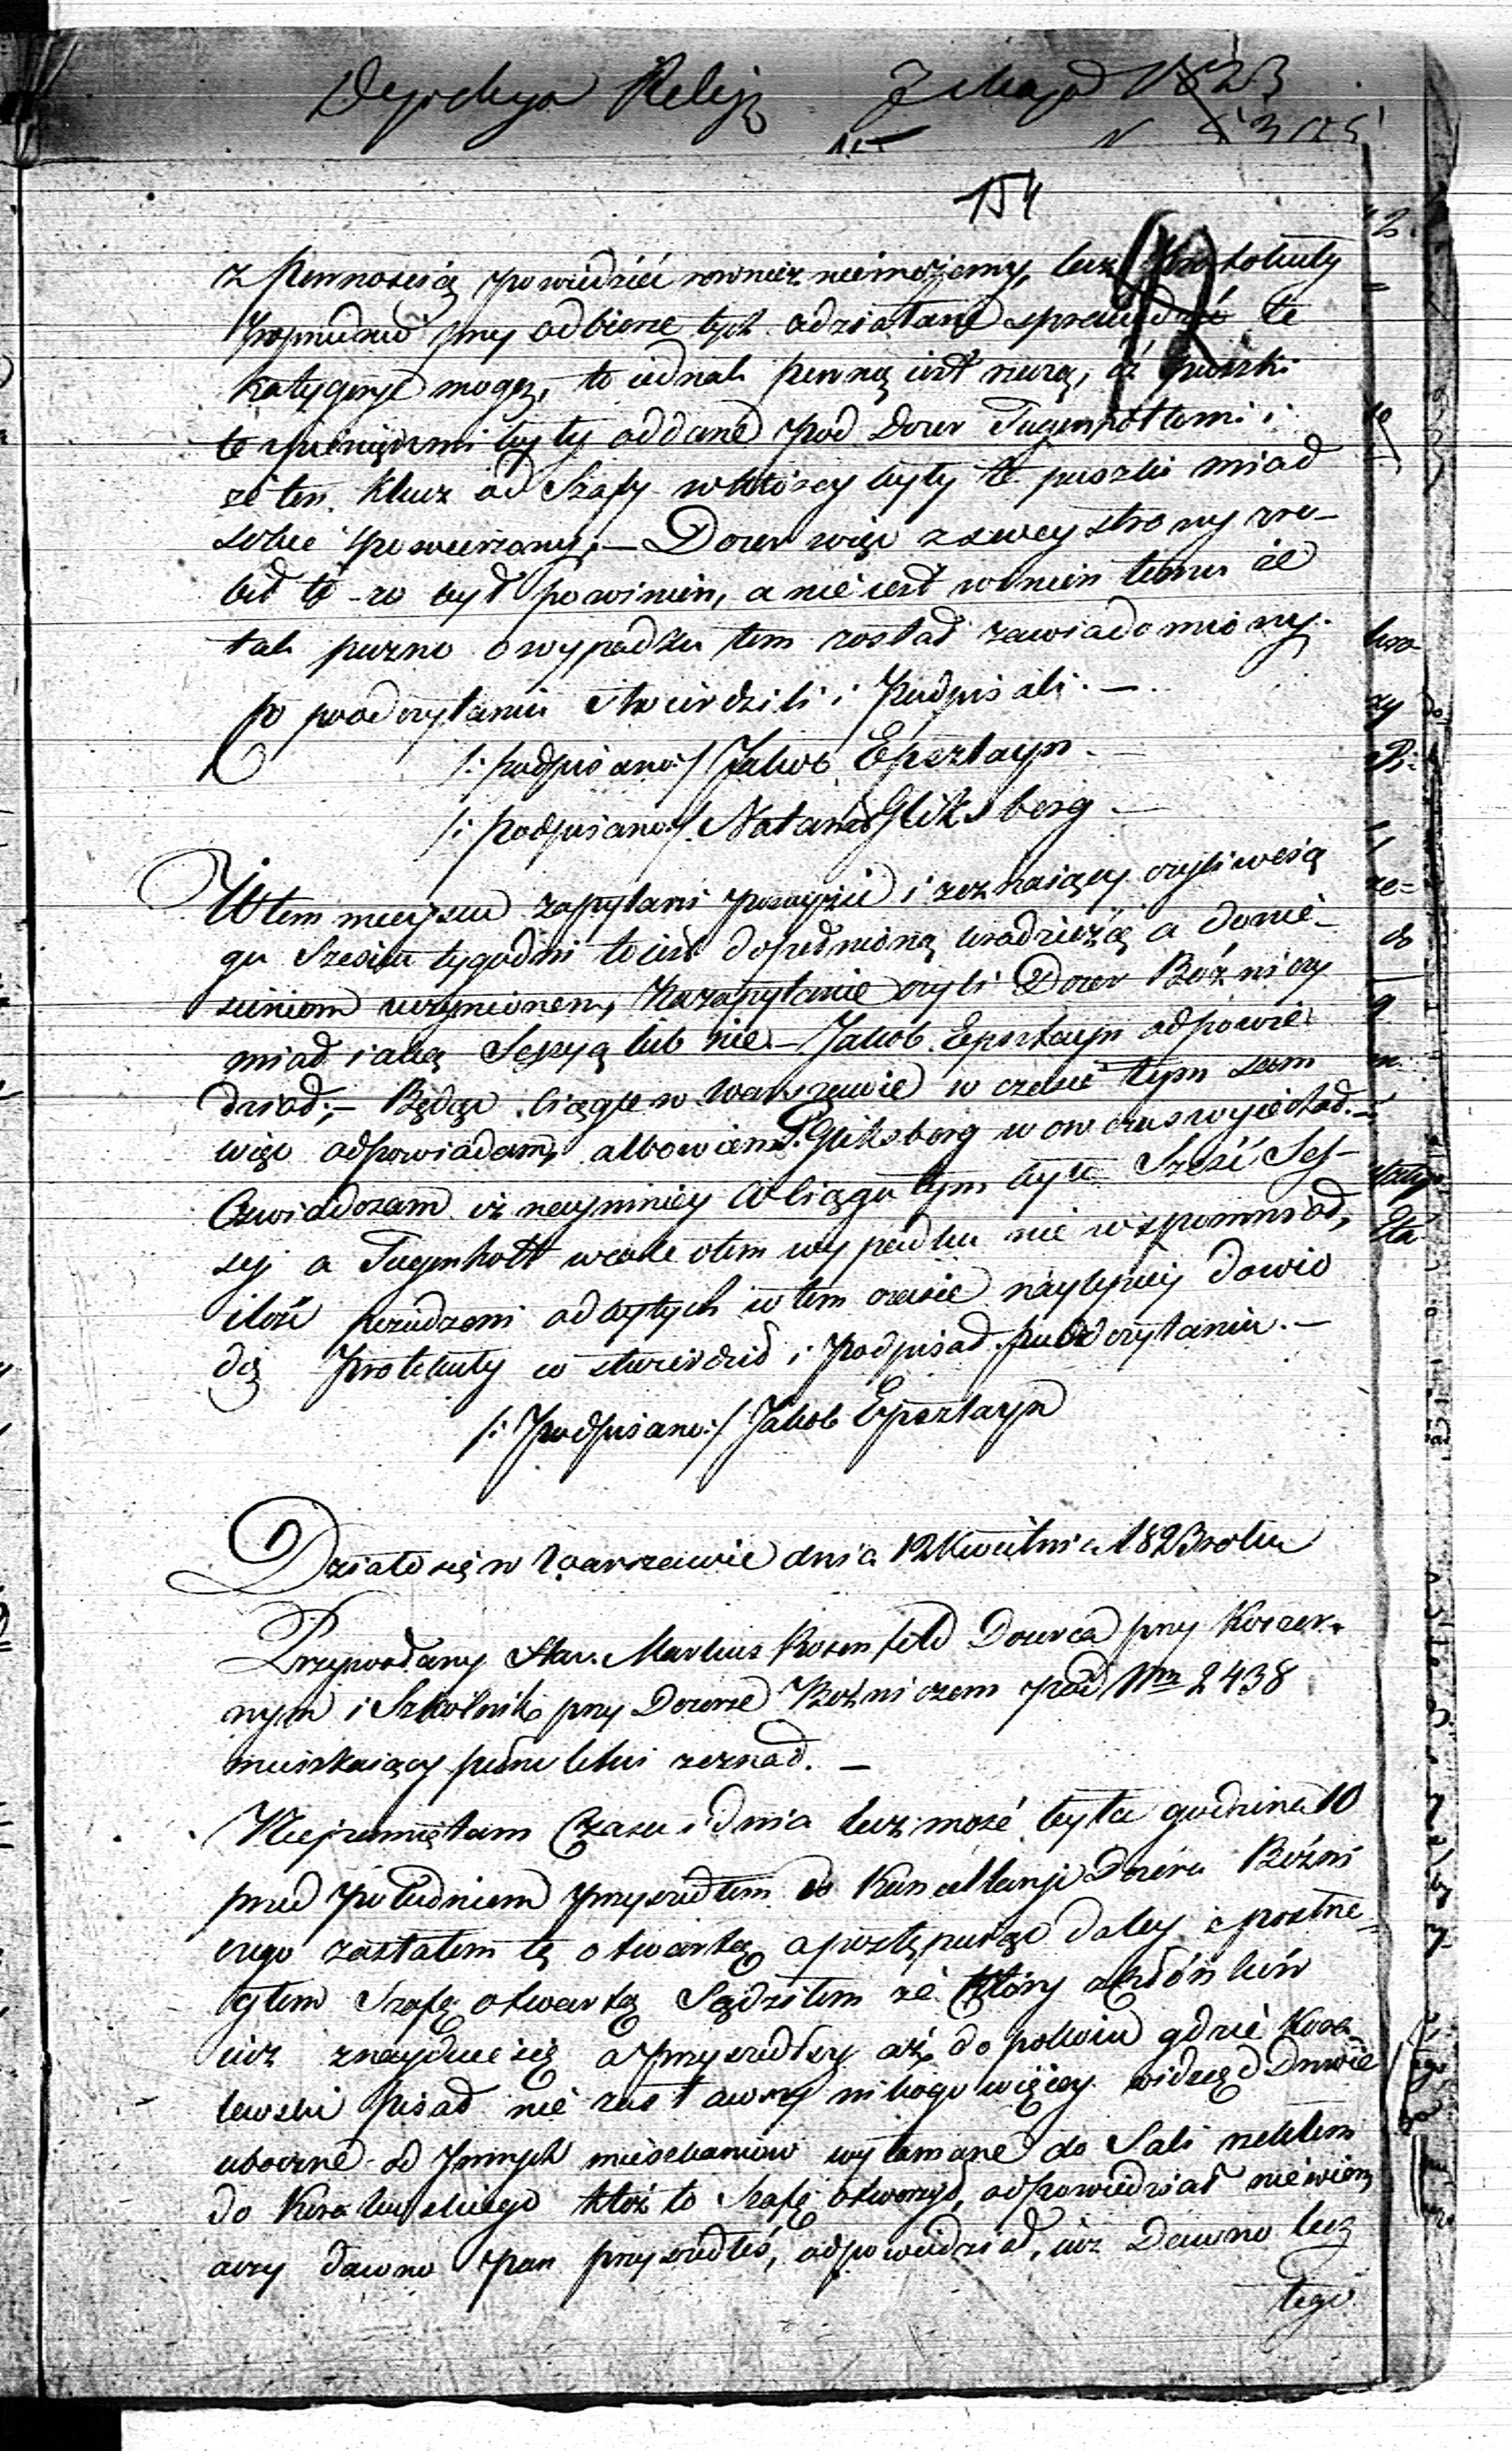 Dyrekcya Religi 7 Maja 1823
N 5305
154
12
z pewnością powiedzieć rownież niemożemy, lecz Protokuły
przy odbiorze tych odziałane sprawdzić te
katygorje mogą, to iednak pewną iest rzeczą, iż puszki
te z pieniędzmi były oddane pod Dozor Tugenholtowi i
że ten klucz od Szafy w którey były te puszki miał
sobie powierzony. — Dozor więc z swey strony zro-
bił to co był powinien, a nie iest winien temu że
tak puzno o wypadku tem został zawiadomiony.
po poodczytaniu stwierdzili i Podpisali. —
/: podpisano :/ Jakob Epsztayn. —
/: podpisano :/ Natan Gliksberg —
W tem mieyscu zapytani powyżej i zeznaiący czyli w cią
gu Sześciu tygodni to iest dopełnioną kradzieżą a donie-
sieniem uczynionem, Na zapytanie czyli Dozor Bóżniczy
miał iaką Sessyą lub nie — Jakob Epsztayn odpowie-
dział; — Będąc ciągle w Warszawie w czasie tym sam
więc odpowiadam, albowiem P. Gliksberg w ow czas wyiechał. —
Oswiadczam iż naymniey w ciągu tym było Sześć Ses-
syj a Tugenholt wcale o tem wypadku nie wspomniał,
ilość posiedzeni odbytych w tem czasie naylepiej dowio
dą Protokuły co stwierdził i Podpisał po odczytaniu. —
/: Podpisano :/ Jakob Epsztayn
Działo się w Warszawie dnia 12 Kwietnia 1823 roku
Przywołany Star. Markus Rosenfeld Dozorca przy Koszer-
nym i Szkolnik przy Dozorze Bożniczem pod Nrm 2438
mieszkaiący zeznał. —
Niepamiętam Czasu i dnia lecz może była godzina 10
przed południem przyszedłem do Kancellarji Dozoru Bóżni
czego zastałem tę otwartą a postępuiąc daley spostrze-
głem Szafę otwartą Sądziłem że Który z członków
iuż znayduie się a przyszedłszy aż do pokoiu gdzie Kora-
lewski pisał nie zastawszy nikogo więcey widząc Drzwie
uboczne od Innych mieszkaniów wyłamane do Sali rzekłem
do Koralewskiego któż to Szafę otworzył, odpowiedział nie wiem
a czy dawno pan przyszedłeś, odpowiedział, iuż Dawno lecz
tego